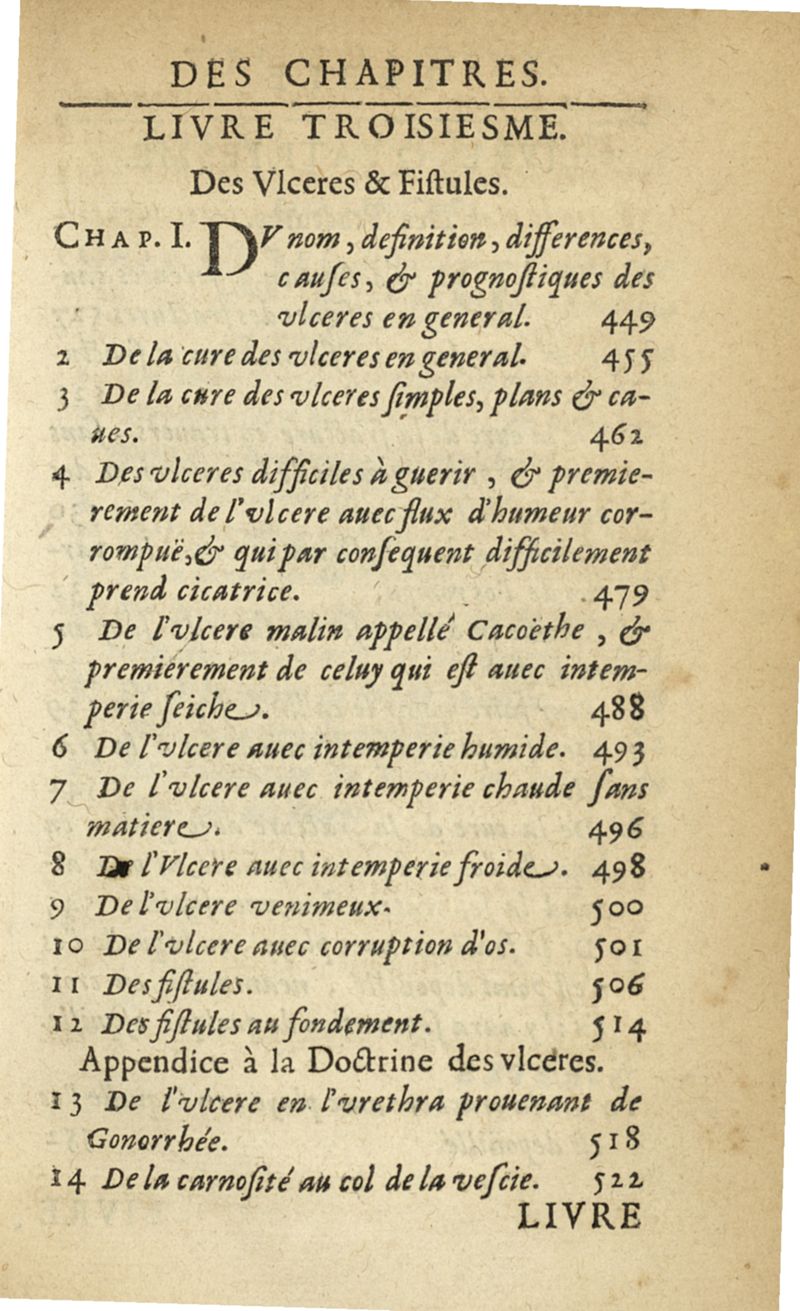 DES CHAPITRES.
LIVRE TROISIESME.
Des Vlceres & Fiſtules.
CHAP. I. DV nom, definition, differences,
cauſes, & prognoſtiques des
vlceres en general. 449
2 De la cure des vlceres en general. 455
3 De la cure des vlceres ſimples, plans & ca-
ues. 462
4 Des vlceres difficiles à guerir , & premie-
rement de l'vlcere auec flux d'humeur cor-
rompuë, & qui par conſequent difficilement
prend cicatrice. 479
5 De l'vlcere malin appellé Cacoëthe , &
premierement de celuy qui eſt auec intem-
perie ſeiche. 488
6 De l'vlcere auec intemperie humide. 493
7 De l'vlcere auec intemperie chaude ſans
matiere. 496
8 De l'Vlcere auec intemperie froide. 498
9 De l'vlcere venimeux. 500
10 De l'vlcere auec corruption d'os. 501
11 Des fiſtules. 506
12 Des fiſtules au fondement. 514
Appendice à la Doctrine des vlceres.
13 De l'vlcere en l'vrethra prouenant de
Gonorrhée. 518
14 De la carnoſité au col de la veſcie. 522
LIVRE